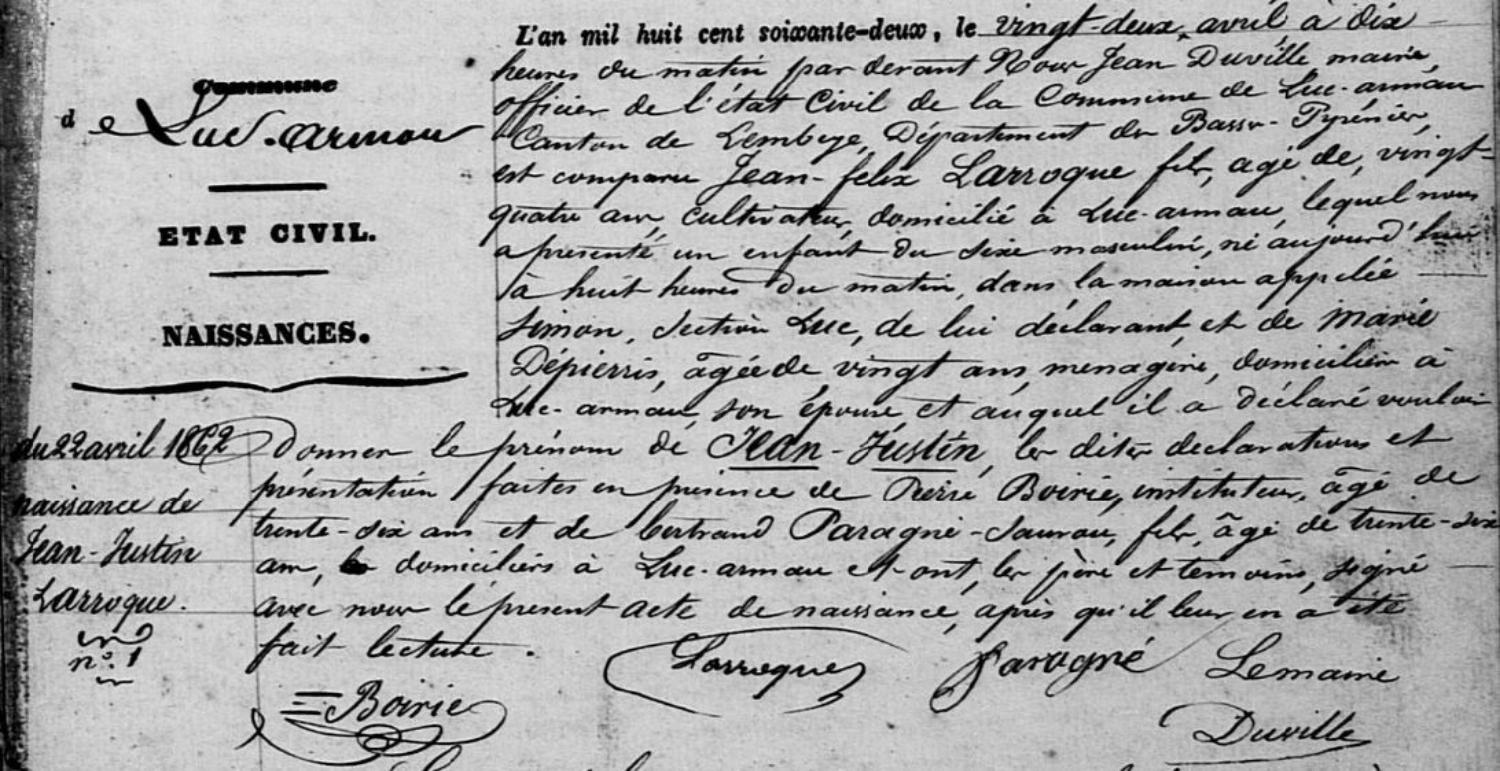 Commune
de Luc-armau
ETAT CIVIL.
NAISSANCES.
du 22 avril 1862
naissance de
Jean-Justin
Larroque.
n°. 1
L'an mil huit cent soixante-deux, le vingt-deux, avril à dix
heures du matin par devant Nous Jean Duville maire,
officier de l'état Civil de la Commune de Luc-armau
Canton de Lembeye, Département des Basses-Pyrénées,
est comparu Jean-felix Larroque fils, agé de, vingt-
quatre ans, cultivateur, domicilié à Luc-armau, lequel nous
a présenté un enfant du sexe masculin, né aujourd'hui
à huit heures du matin, dans la maison appelée
Simon, Section Luc, de lui déclarant, et de Marie
Dépierris, agée de vingt ans, menagère, domiciliés à
Luc-armau, son épouse et auquel il a déclaré vouloir
donner le prénom de Jean-Justin, les dites declarations et
présentation faites en présence de Pierre Boirie, instituteur, âgé de
trente-six ans et de bertrand Paragné-Saurau, fils, âgé de trente-six
ans, domiciliés à Luc-armau et ont, les père et temoins, signé
avec nous le présent acte de naissance, après qu'il leur en a été
fait lecture.
Larroque Paragné Lemaire
Boirie
Duville